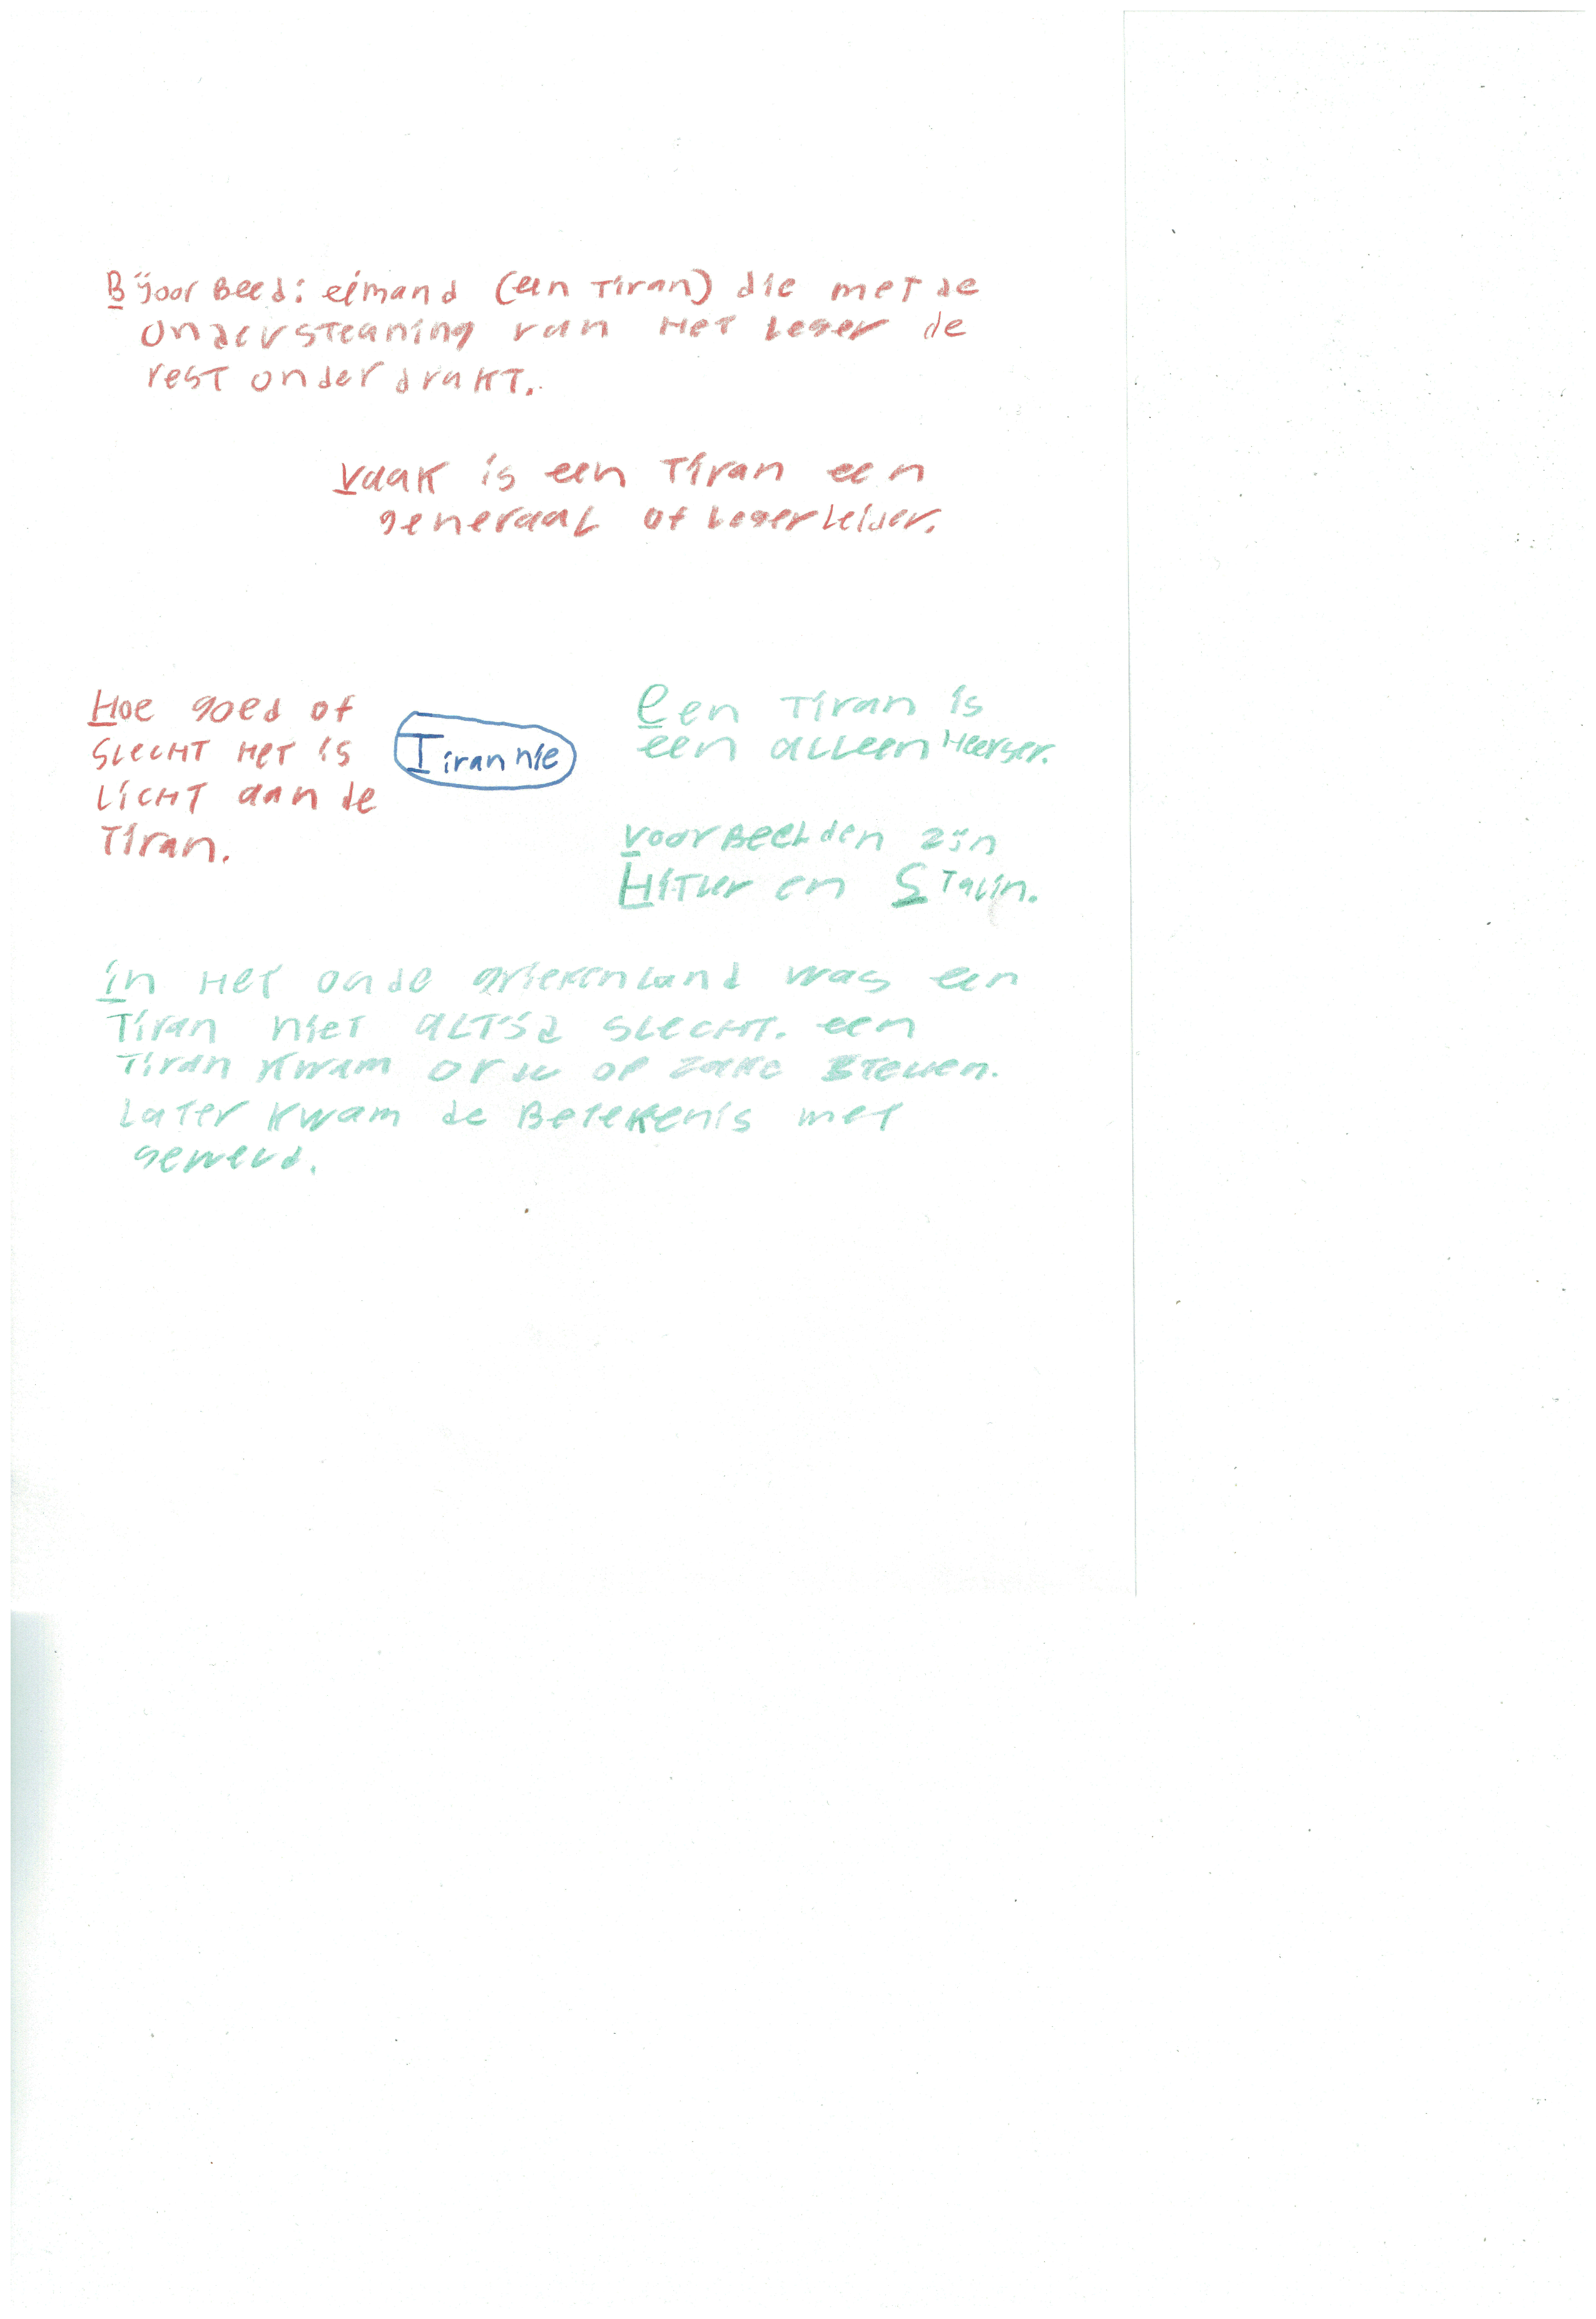 Bijoorbeed: eimand (een tiran) die met de
ondersteaning van het leger de
rest onderdrukt.
Vaak is een tiran een
generaal of legerleider.
Hoe goed of
slecht het is
licht aan de
tiran.
Tirannie
Een tiran is
een alleenheerser.
Voorbeelden zijn
Hitler en Stalin.
in het oude griekenland was een
tiran niet altijd slecht. een
tiran kwam orde op zake stellen.
later kwam de betekenis met
geweld.